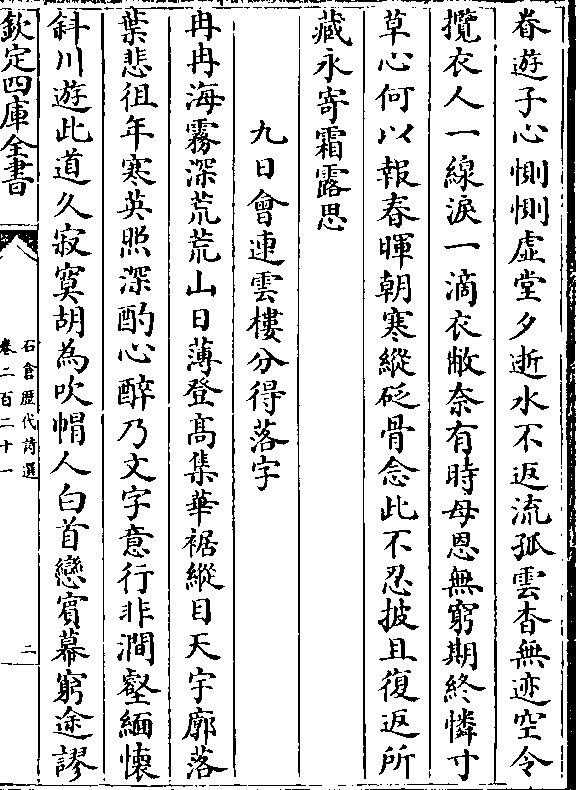 眷遊子心惻惻虛堂夕逝水不返流孤雲杳無迹空令
攬衣人一線淚一滴衣敝奈有時母恩無窮期終憐寸
草心何以報春暉朝寒縱砭骨念此不忍披且復返所
藏永寄霜露思
九日會連雲樓分得落字
冉冉海霧深荒荒山日薄登髙集華裾縱目天宇廓落
葉悲徂年寒英照深酌心醉乃文字意行非澗壑緬懷
斜川遊此道久寂寞胡為吹帽人白首戀賓幕窮途謬
欽定四庫全書
石倉歷代詩選
卷二百二十一
二